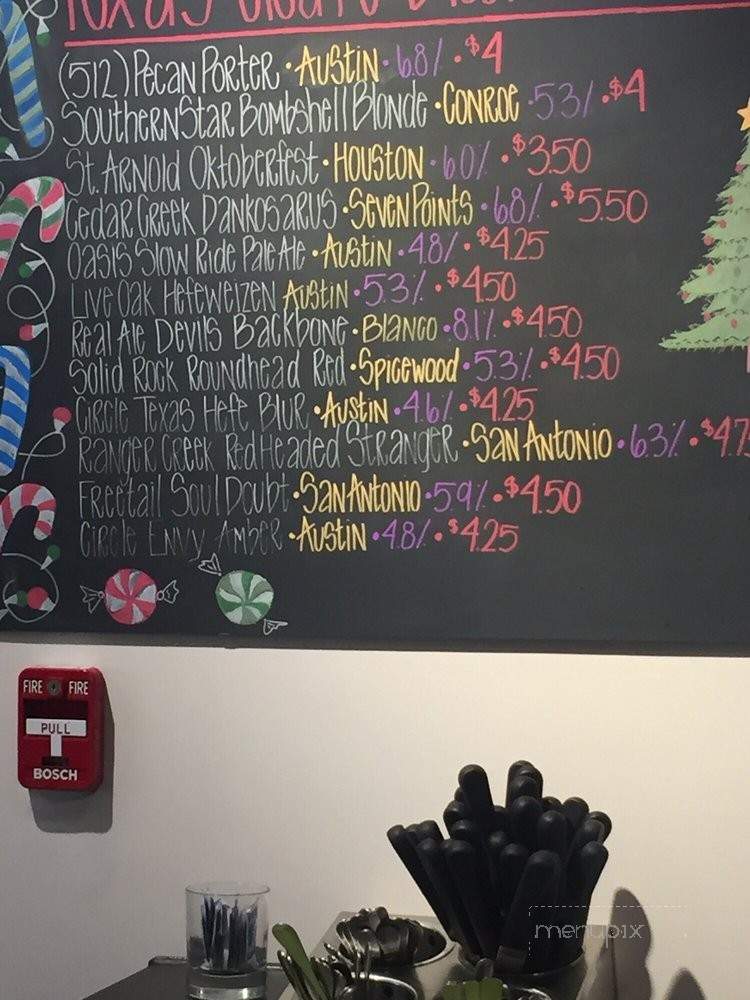 (512) Pecan Porter • Austin • 6.8% • $4
Southern Star Bombshell Blonde • Conroe • 5.3% • $4
St. Arnold Oktoberfest • Houston • 6.0% • $3.50
Cedar Creek Dankosarus • Seven Points • 6.8% • $5.50
Oasis Slow Ride Pale Ale • Austin • 4.8% • $4.25
Live Oak Hefeweizen Austin • 5.3% • $4.50
Real Ale Devils Backbone • Blanco • 8.1% • $4.50
Solid Rock Roundhead Red • Spicewood • 5.3% • $4.50
Circle Texas Hefe Blur • Austin • 4.6% • $4.25
Ranger Creek Red Headed Stranger • San Antonio • 6.3% • $4.75
Freetail Soul Doubt • San Antonio • 5.9% • $4.50
Circle Envy Amber • Austin • 4.8% • $4.25
FIRE FIRE
PULL
BOSCH
menupix